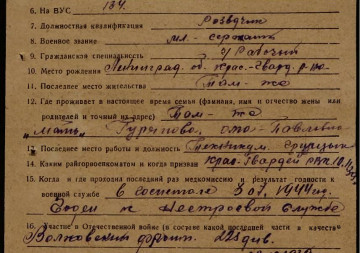 6. На ВУС 134.
7. Должностная квалификация Разведчик
8. Военное звание мл. сержант
9. Гражданская специальность ч/рабочий
10. Место рождения Ленинград обл. Крас-Гвард. р-не
11. Последнее место жительства Там-же
12. Где проживает в настоящее время семья (фамилия, имя и отчество жены или
родителей и точный их адрес) Там-же
"мать"
13. Последнее место работы и должность
14. Каким райгорвоенкоматом и когда призван Крас-Гвардей РВК
15. Когда и где проходил последний раз медкомиссию и результат годности к
военной службе в госпитале 1944 г.
Годен к нестроевой службе
16. Участие в Отечественной войне (в составе какой последней части и в качестве
Волховский фронт. див.